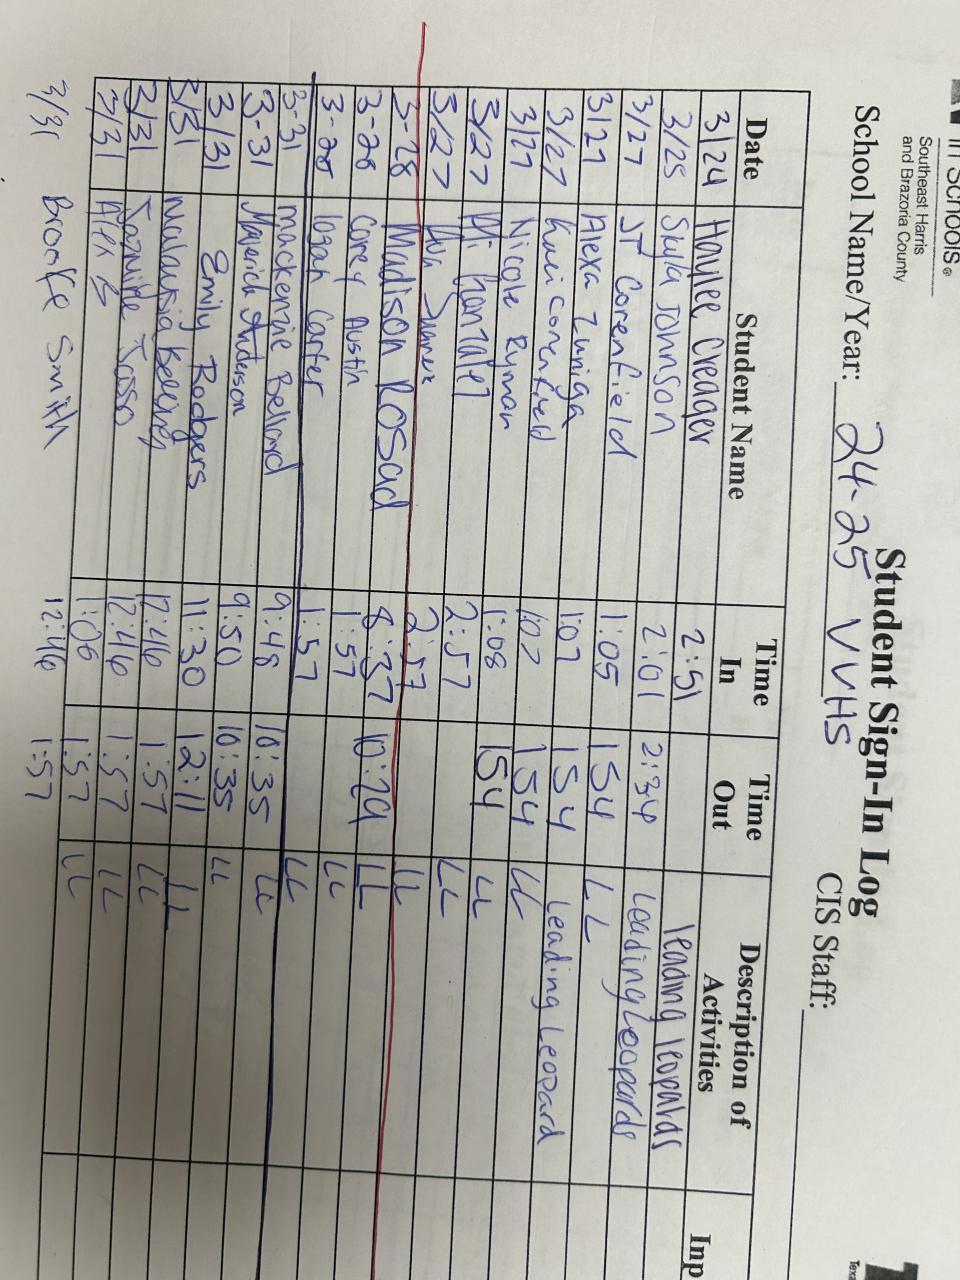 In Schools
Southeast Harris
and Brazoria County
Student Sign-In Log
School Name/Year: 24-25 VVHS CIS Staff:
Date Student Name Time In Time Out Description of Activities Inp
3/24 Haylee Creager 2:51 leading leopards
3/25 Suyla Johnson 2:01 2:34 Leading Leopards
3/27 JT Corenfield 1:05 1 54 LL
3/27 Alexa Zuniga 1:07 1 54 Leading Leopard
3/27 Kimi Corenfield 1:07 1 54 LL
3/27 Nicole Ryman 1:08 1 54 LL
3/27 2:57 LL
3/27 2:57 LL
3-28 Madison Rosad 8:37 10:29 LL
3-28 Corey Austin 1:57 LL
3-28 logan Carter 1:57 LL
3-31 mackenzie Bellard 9:48 10:35 LL
3-31 Maverick Anderson 9:50 10:35 LL
3/31 Emily Rodgers 11:30 12:11 LL
3/31 12:46 1:57 LL
3/31 Jasmine Jasso 12:46 1:57 LL
3/31 1:06 1:57 LL
3/31 Brooke Smith 12:46 1:57